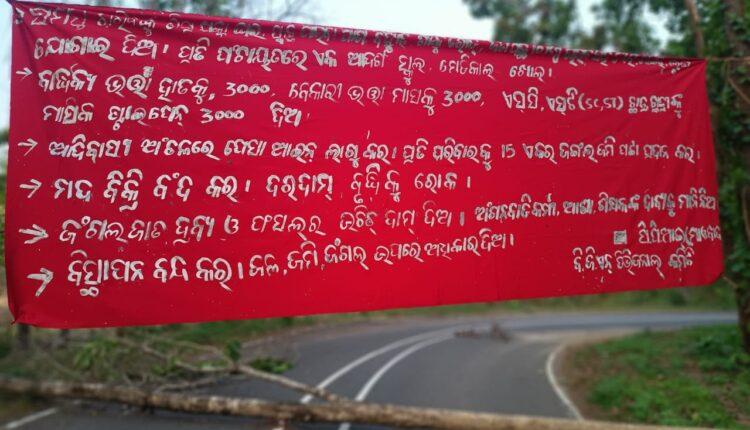 ଯୋଗାଇ ଦିଅ। ପ୍ରତି ପଂଚାୟତରେ ଏକ ଆଦର୍ଶ ସ୍କୁଲ, ମେଡିକାଲ ଖୋଲ।
→ ବାର୍ଦ୍ଧକ୍ୟ ଭତ୍ତା ହାତକୁ, 3000, ବେକାରୀ ଭତ୍ତା ମାସକୁ 3000, ଏସସି, ଏସଟି (SC,ST)
ମାସିକ 3000 ଦିଅ।
→ ଆଦିବାସୀ ଅଂଚଳରେ ପେସା ଆଇନ ଲାଗୁ କର। ପ୍ରତି ପରିବାରକୁ 15 ଏକର ଜଙ୍ଗଲ ଜମି ପଟା ପ୍ରଦାନ କର।
→ ମଦ ବିକ୍ରି ବଂଦ କର। ଦରଦାମ୍ ବୃଦ୍ଧିକୁ ରୋକ।
→ ଜଂଗଲ ଜାତ ଦ୍ରବ୍ୟ ଓ ଫସଲ୍‌ର ଉଚିତ୍ ଦାମ୍ ଦିଅ। ଅଂଗନବାଡି କର୍ମୀ, ଆଶା, ଶିକ୍ଷକଙ୍କ ଦାବୀକୁ ମାନିନିଅ
→ ବିସ୍ଥାପନ ବନ୍ଦ କର। ଜଳ, ଜମି, ଜଂଗଲ୍ ଉପରେ ଅଧିକାର ଦିଅ।
ସି.ପି.ଆଇ (ମାଓବାଦୀ)
ବି.ଜି.ଏନ୍ ଡିଭିଜନାଲ୍ କମିଟି